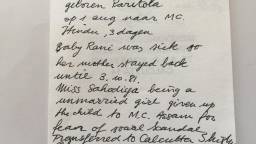 geboren Paritola
op 1 aug naar M.C.
Hindu, 3 dagen
Baby Rani was sick so
her mother stayed back
until 3.10.81.
Miss Sahadiya being a
unmarried girl given up
the child to M.C. Assam for
fear of social scandal
Transferred to Calcutta